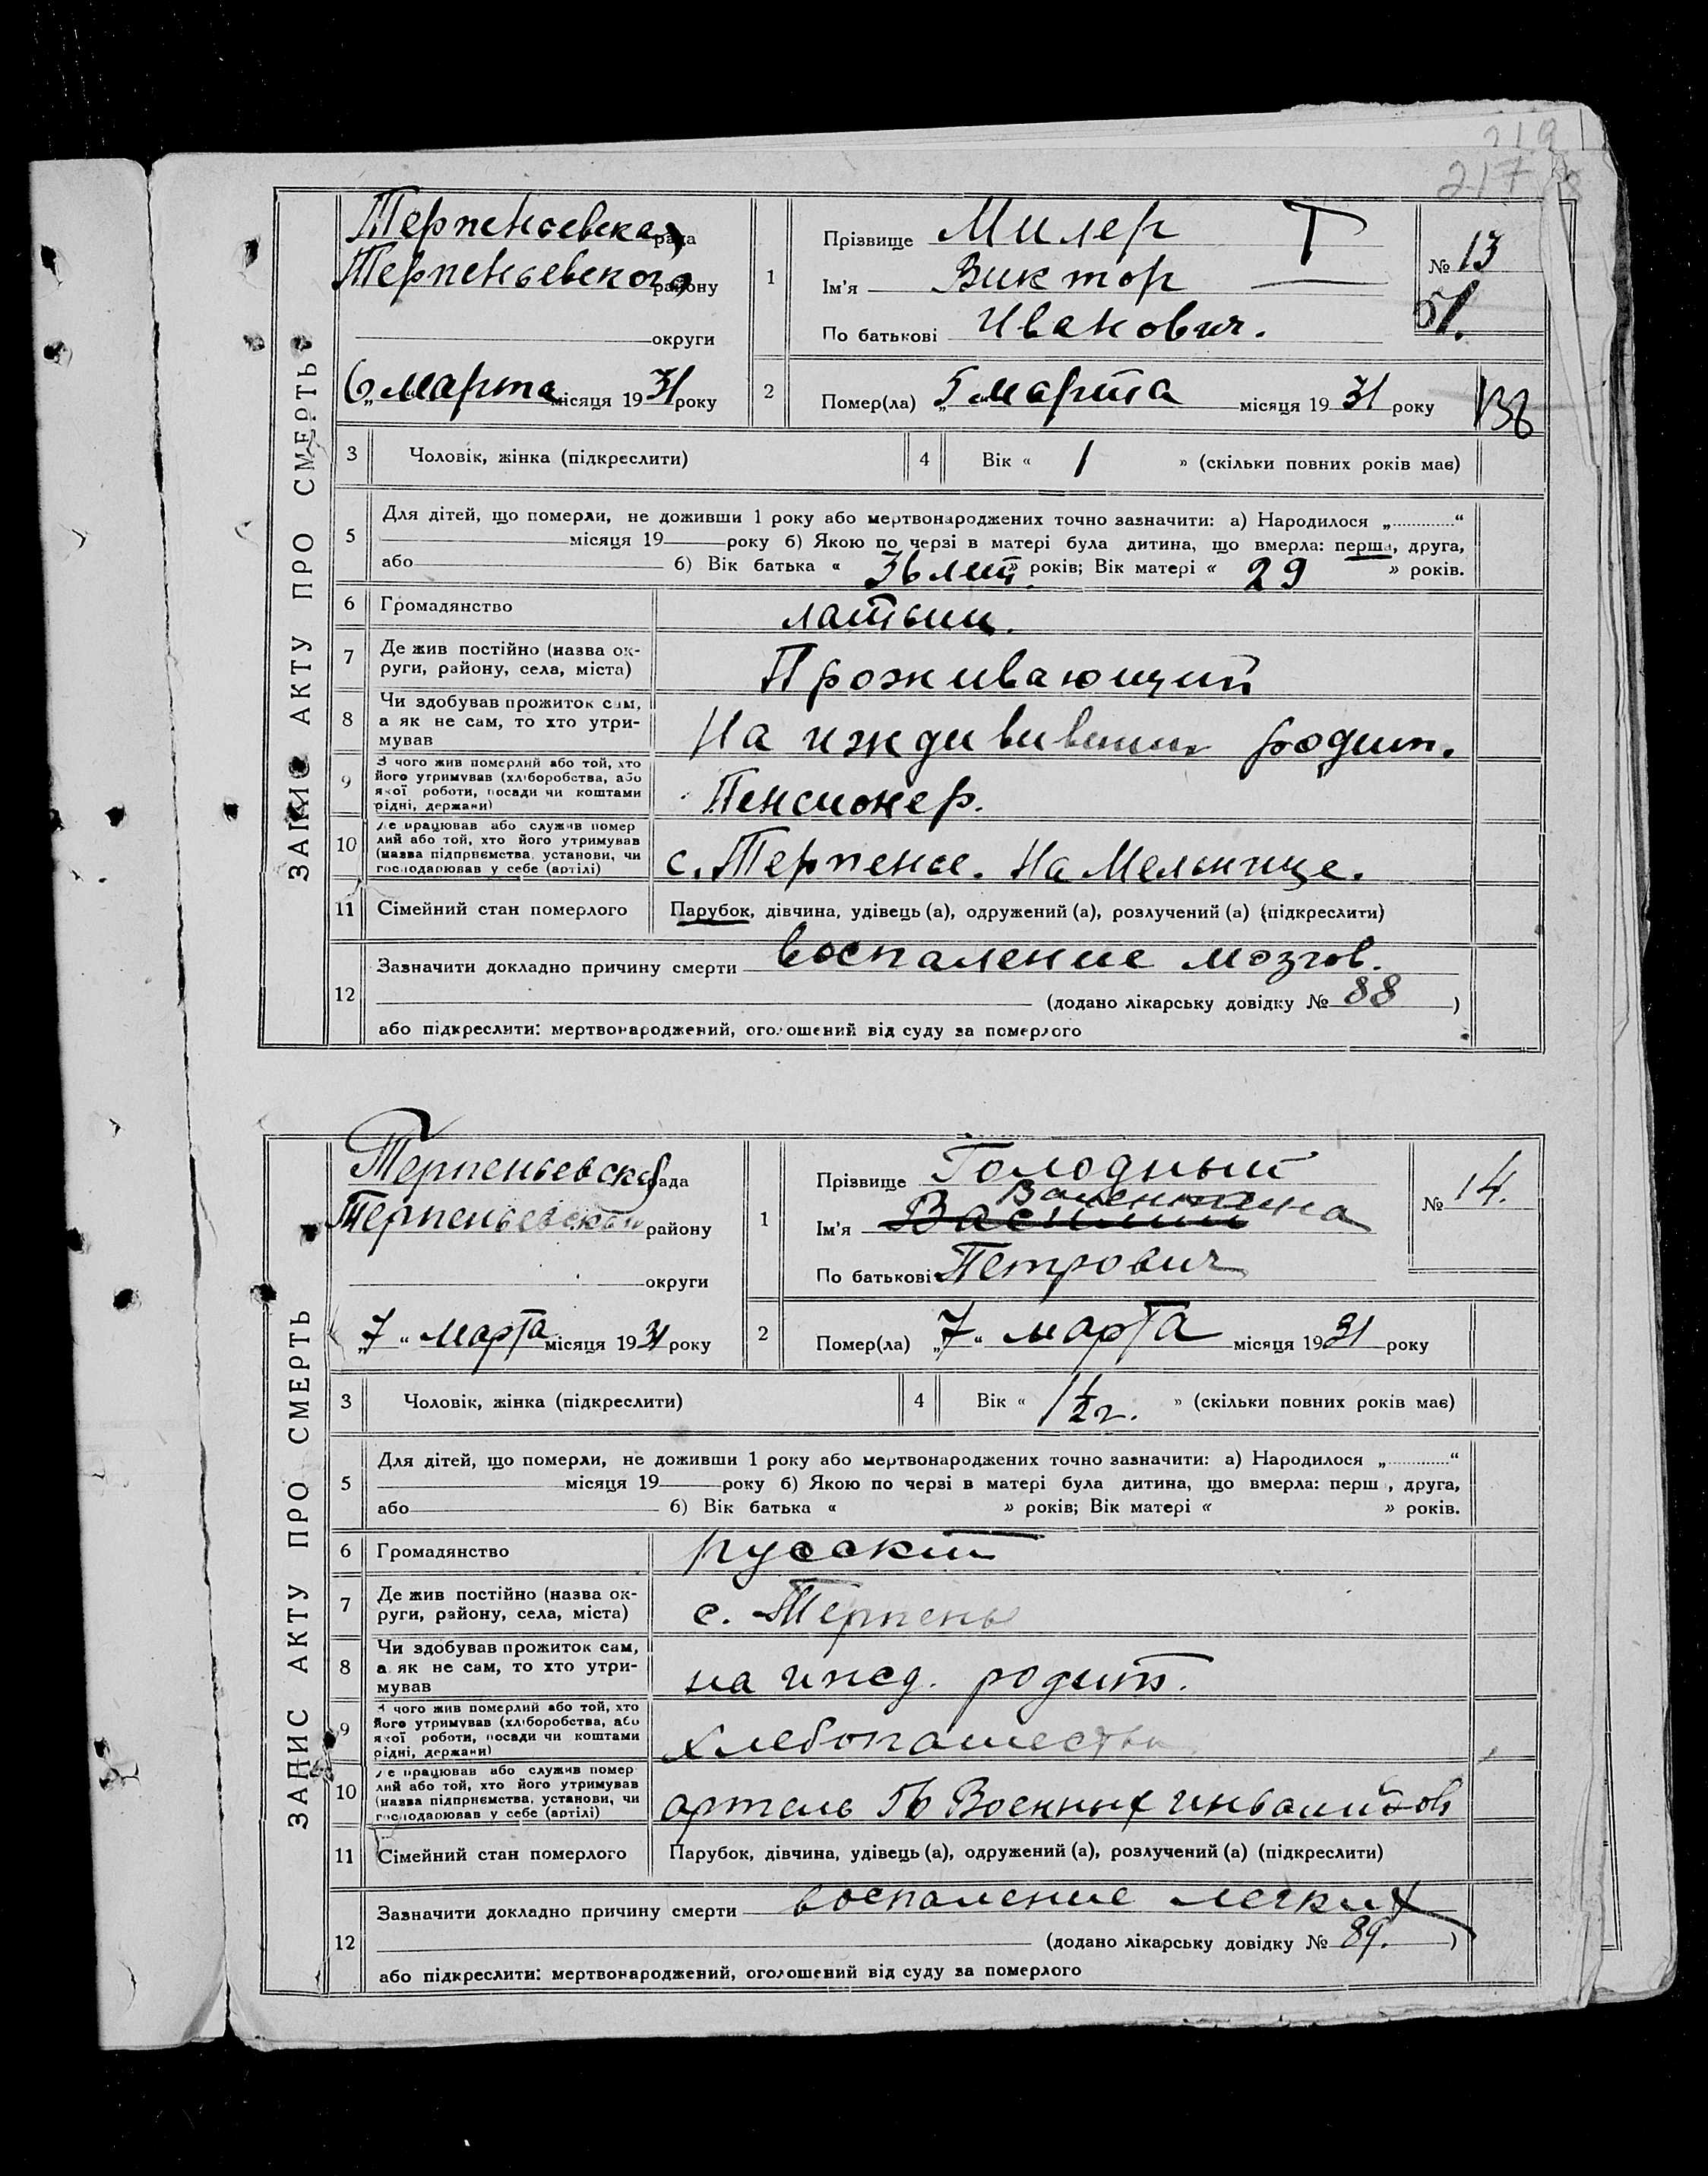 219
217
ЗАПИС АКТУ ПРО СМЕРТЬ
Терпеньевская рада
Терпеньевского району
округи
6 „ марта місяця 1931 року
1
Прізвище Милер
Ім'я Виктор
По батькові Иванович.
№ 13
51.
2
Помер(ла) „5 марта місяця 1931 року
138
3 Чоловік, жінка (підкреслити)
4 Вік « 1 » (скільки повних років має)
5 Для дітей, що померли, не доживши 1 року або мертвонароджених точно зазначити: а) Народилося „ “
місяця 19 року б) Якою по черзі в матері була дитина, що вмерла: перша, друга,
або б) Вік батька « 36 лет. » років; Вік матері « 29 » років.
6 Громадянство латыш.
7 Де жив постійно (назва ок-
руги, району, села, міста) Проживающий
8 Чи здобував прожиток сам,
а як не сам, то хто утри-
мував На иждивении родит.
9 З чого жив померлий або той, хто
його утримував (хліборобства, або
якої роботи, посади чи коштами
рідні, держави) Пенсионер.
10 Де працював або служив помер
лий або той, хто його утримував
(назва підприємства, установи, чи
господарював у себе (артілі) с. Терпенье. На Мельнице.
11 Сімейний стан померлого Парубок, дівчина, удівець (а), одружений (а), розлучений (а) (підкреслити)
12 Зазначити докладно причину смерти воспаление мозгов.
(додано лікарську довідку № 88 )
або підкреслити: мертвонароджений, оголошений від суду за померлого
ЗАПИС АКТУ ПРО СМЕРТЬ
Терпеньевская рада
Терпеньевский району
округи
„7“ марта місяця 1931 року
1
Прізвище Голодный
Валентина
Ім'я Василий
По батькові Петрович
№ 14.
2
Помер(ла) „7“ марта місяця 1931 року
3 Чоловік, жінка (підкреслити)
4 Вік « 1 1/2 г. » (скільки повних років має)
5 Для дітей, що померли, не доживши 1 року або мертвонароджених точно зазначити: а) Народилося „ “
місяця 19 року б) Якою по черзі в матері була дитина, що вмерла: перш , друга,
або б) Вік батька « » років; Вік матері « » років.
6 Громадянство русский
7 Де жив постійно (назва ок-
руги, району, села, міста) с. Терпенье
8 Чи здобував прожиток сам,
а як не сам, то хто утри-
мував на ижд. родит.
9 З чого жив померлий або той, хто
його утримував (хліборобства, або
якої роботи, посади чи коштами
рідні, держави) хлебопашество
10 Де працював або служив помер
лий або той, хто його утримував
(назва підприємства, установи, чи
господарював у себе (артілі) артель Военных инвалидов
11 Сімейний стан померлого Парубок, дівчина, удівець (а), одружений (а), розлучений (а) (підкреслити)
12 Зазначити докладно причину смерти воспаление легких
(додано лікарську довідку № 89. )
або підкреслити: мертвонароджений, оголошений від суду за померлого